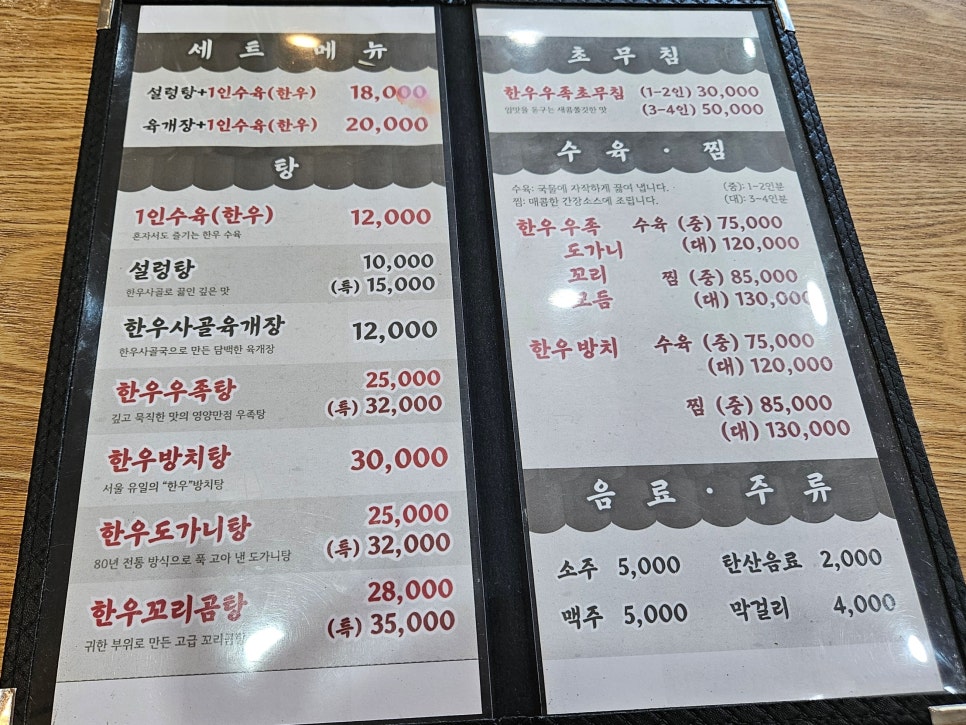 세트 메뉴
설렁탕+1인수육(한우) 18,000
육개장+1인수육(한우) 20,000
탕
1인수육(한우) 12,000
혼자서도 즐기는 한우 수육
설렁탕 10,000
(특) 15,000
한우사골로 끓인 깊은 맛
한우사골육개장 12,000
한우사골국으로 만든 담백한 육개장
한우우족탕 25,000
(특) 32,000
깊고 묵직한 맛의 영양만점 우족탕
한우방치탕 30,000
서울 유일의 "한우"방치탕
한우도가니탕 25,000
(특) 32,000
80년 전통 방식으로 푹 고아 낸 도가니탕
한우꼬리곰탕 28,000
(특) 35,000
귀한 부위로 만든 고급 꼬리곰탕
초무침
한우우족초무침 (1-2인) 30,000
입맛을 돋구는 새콤쫄깃한 맛 (3-4인) 50,000
수육·찜
수육: 국물에 자작하게 끓여 냅니다. (중): 1-2인분
찜: 매콤한 간장소스에 조립니다. (대): 3-4인분
한우우족 수육 (중) 75,000
도가니 (대) 120,000
꼬리 찜 (중) 85,000
모듬 (대) 130,000
한우방치 수육 (중) 75,000
(대) 120,000
찜 (중) 85,000
(대) 130,000
음료·주류
소주 5,000 탄산음료 2,000
맥주 5,000 막걸리 4,000